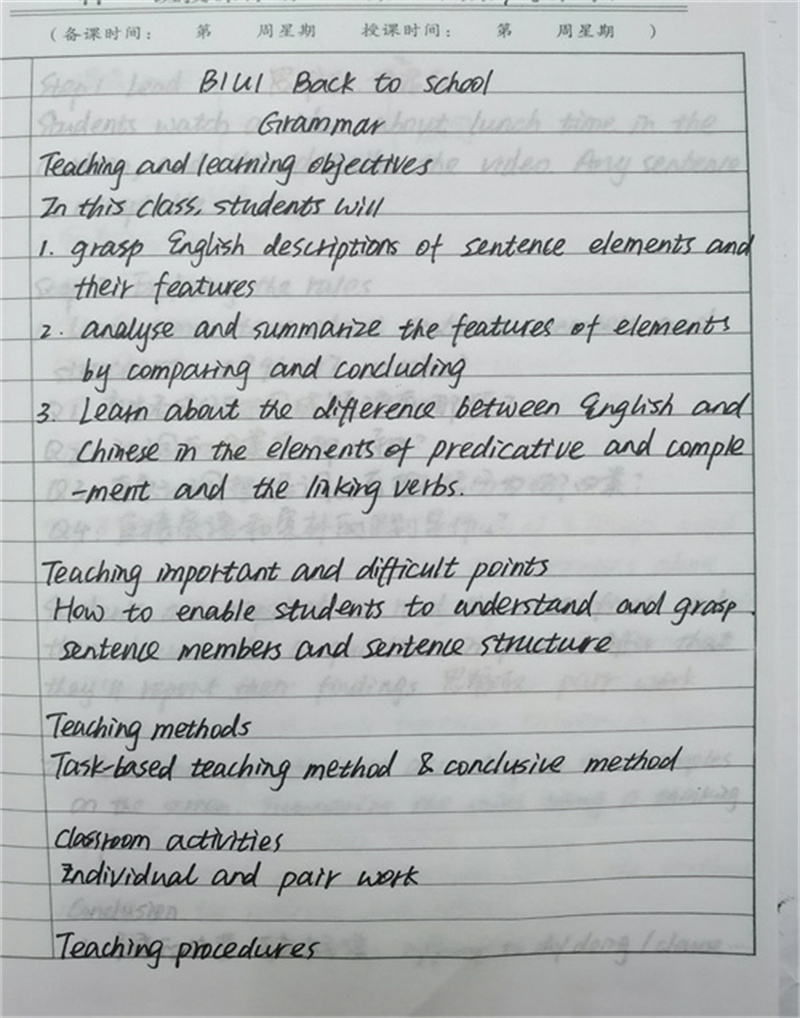 （备课时间： 第 周星期 授课时间： 第 周星期 ）
B1U1 Back to school
Grammar
Teaching and learning objectives
In this class, students will
1. grasp English descriptions of sentence elements and
their features
2. analyse and summarize the features of elements
by comparing and concluding
3. Learn about the difference between English and
Chinese in the elements of predicative and comple
-ment and the linking verbs.
Teaching important and difficult points
How to enable students to understand and grasp
sentence members and sentence structure
Teaching methods
Task-based teaching method & conclusive method
Classroom activities
Individual and pair work
Teaching procedures